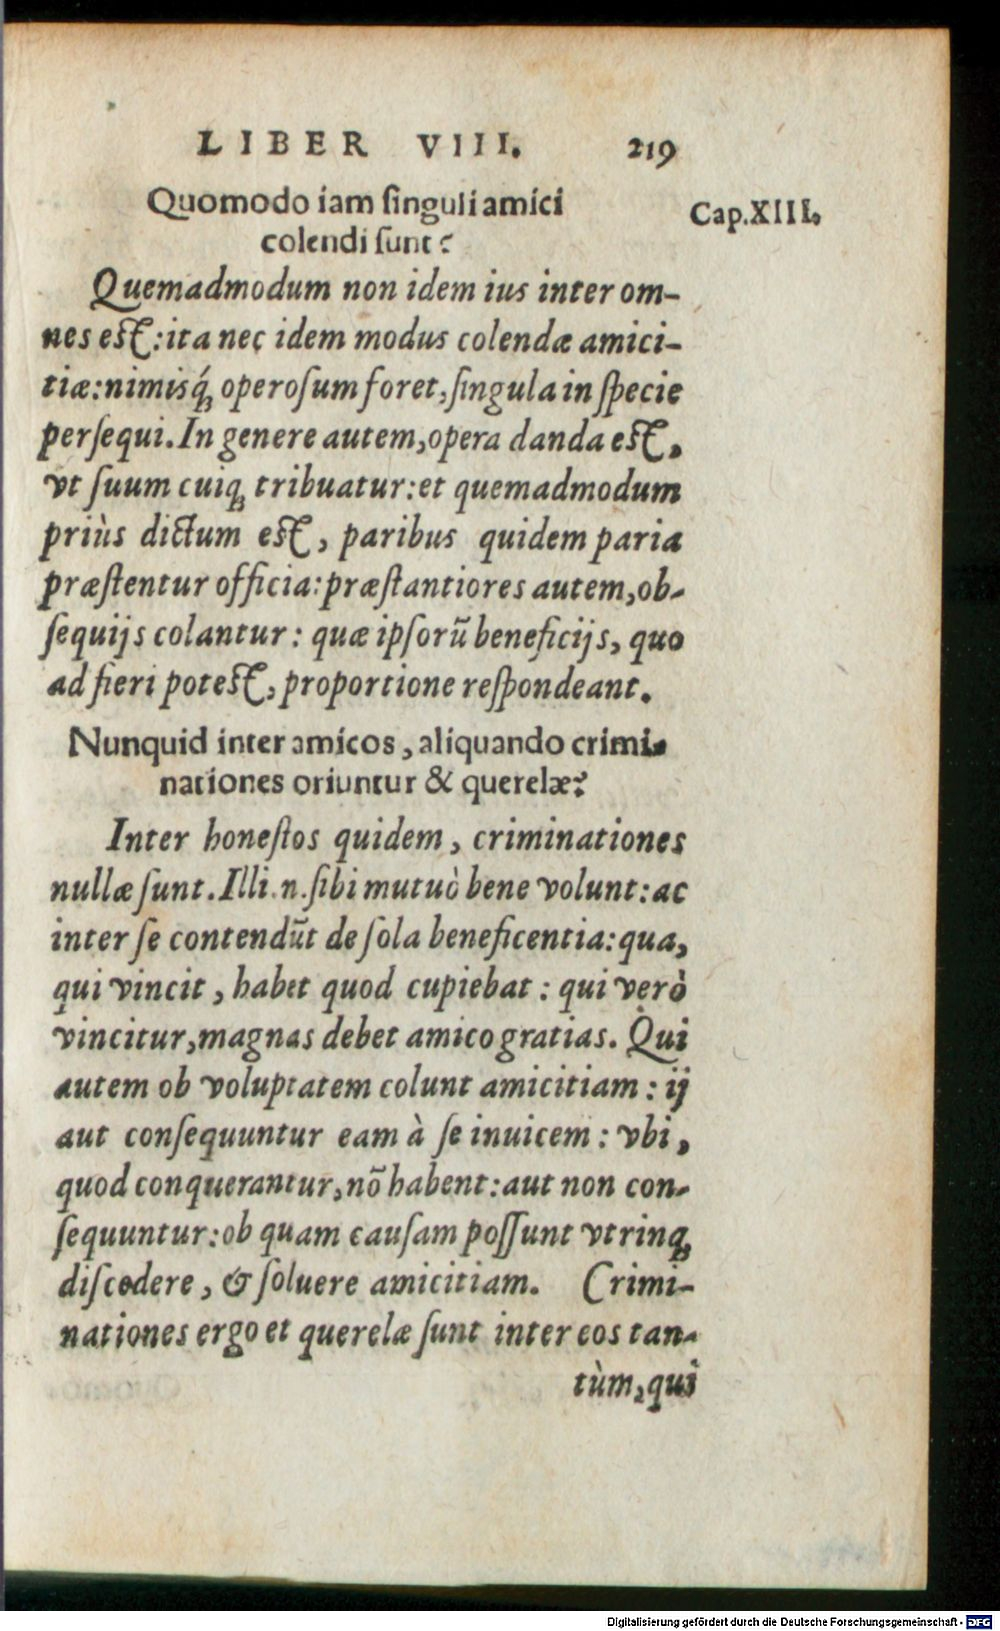 LIBER VIII. 219
Quomodo iam ſinguli amici
colendi ſunt?
Cap. XIII.
Quemadmodum non idem ius inter om-
nes eſt: ita nec idem modus colendæ amici-
tiæ: nimisq́; operoſum foret, ſingula in ſpecie
perſequi. In genere autem, opera danda eſt,
vt ſuum cuiq; tribuatur: et quemadmodum
priùs dictum eſt, paribus quidem paria
præſtentur officia: præſtantiores autem, ob-
ſequijs colantur: quæ ipſorũ beneficijs, quo
ad fieri poteſt, proportione reſpondeant.
Nunquid inter amicos, aliquando crimi-
nationes oriuntur & querelæ?
Inter honeſtos quidem, criminationes
nullæ ſunt. Illi .n. ſibi mutuò bene volunt: ac
inter ſe contendũt de ſola beneficentia: qua,
qui vincit, habet quod cupiebat: qui verò
vincitur, magnas debet amico gratias. Qui
autem ob voluptatem colunt amicitiam: ij
aut conſequuntur eam à ſe inuicem: vbi,
quod conquerantur, nõ habent: aut non con-
ſequuntur: ob quam cauſam poſſunt vtrinq;
diſcedere, & ſoluere amicitiam. Crimi-
nationes ergo et querelæ ſunt inter eos tan-
tùm, qui
Digitalisierung gefördert durch die Deutsche Forschungsgemeinschaft - DFG